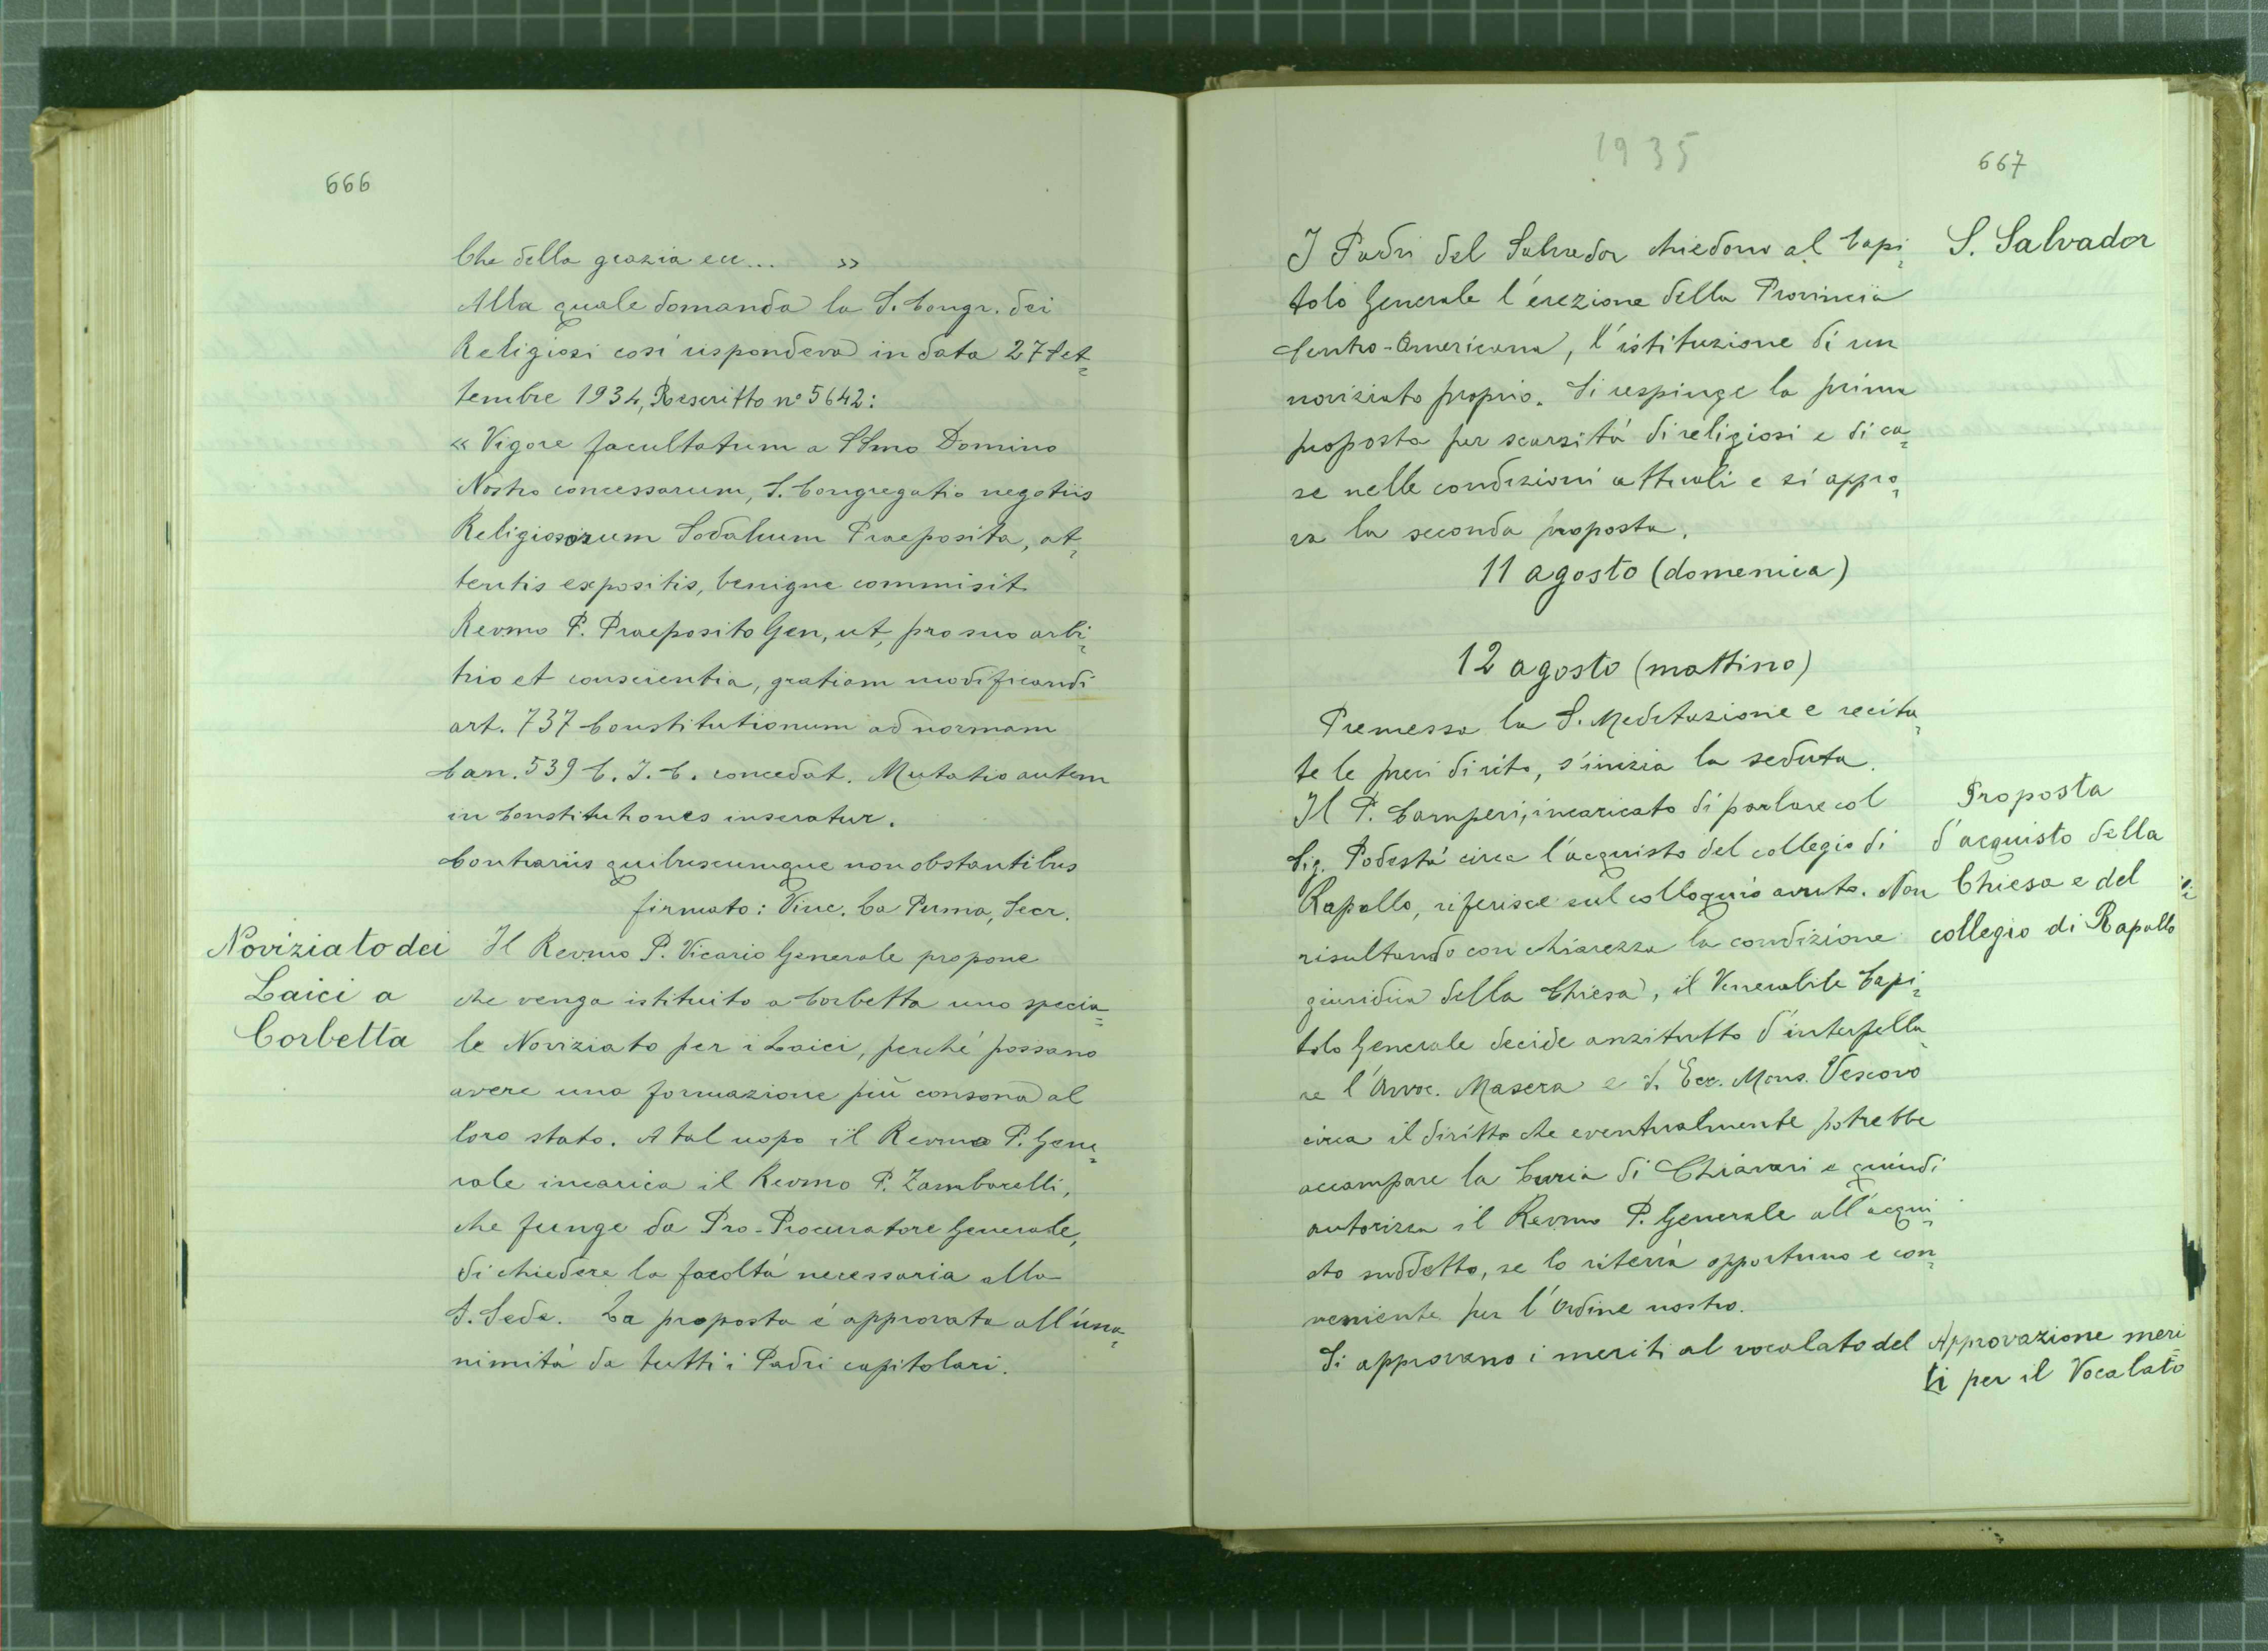 666
Che della grazia ecc... »
Alla quale domanda la S. Congr. dei
Religiosi così rispondeva in data 27 Set=
tembre 1934, Rescritto n° 5642:
« Vigore facultatum a SSmo Domino
Nostro concessarum, S. Congregatio negotiis
Religiosorum Sodalium Praeposita, at=
tentis expositis, benigne commisit
Revmo P. Praeposito Gen, ut, pro suo arbi=
trio et conscientia, gratiam modificandi
art. 737 Constitutionum ad normam
Can. 539 C. I. C. concedat. Mutatio autem
in Constitutiones inseratur.
Contrariis quibuscumque non obstantibus
firmato: Vinc. La Puma, Secr.
Noviziato dei
Laici a
Corbetta
Il Revmo P. Vicario Generale propone
che venga istituito a Corbetta uno specia=
le Noviziato per i Laici, perché possano
avere una formazione più consona al
loro stato. A tal uopo il Revmo P. Gene=
rale incarica il Revmo P. Zambarelli,
che funge da Pro-Procuratore Generale,
di chiedere la facoltà necessaria alla
S. Sede. La proposta è approvata all'una=
nimità da tutti i Padri capitolari.
1935
667
S. Salvador
I Padri del Salvador chiedono al Capi=
tolo Generale l'erezione della Provincia
Centro-Americana, l'istituzione di un
noviziato proprio. Si respinge la prima
proposta per scarsità di religiosi e di ca=
se nelle condizioni attuali e si appro=
va la seconda proposta.
11 agosto (domenica)
12 agosto (mattino)
Premessa la S. Meditazione e recita=
te le preci di rito, s'inizia la seduta.
Proposta
d'acquisto della
Chiesa e del
collegio di Rapallo
Il P. Camperi, incaricato di parlare col
Sig. Podestà circa l'acquisto del collegio di
Rapallo, riferisce sul colloquio avuto. Non
risultando con chiarezza la condizione
giuridica della Chiesa, il Venerabile Capi=
tolo Generale decide anzitutto d'interpella=
re l'Avvoc. Masera e S. Ecc. Mons. Vescovo
circa il diritto che eventualmente potrebbe
accampare la Curia di Chiavari e quindi
autorizza il Revmo P. Generale all'acqui=
sto suddetto, se lo riterrà opportuno e con=
veniente per l'Ordine nostro.
Si approvano i meriti al vocalato del
Approvazione meri=
ti per il Vocalato